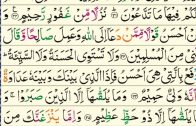 فِيهَا مَا تَدَّعُونَ ۝ نُزُلًا مِّنْ غَفُورٍ رَّحِيمٍ ۝
أَحْسَنُ قَوْلًا مِّمَّن دَعَا إِلَى اللَّهِ وَعَمِلَ صَالِحًا وَقَالَ
مِنَ الْمُسْلِمِينَ ۝ وَلَا تَسْتَوِي الْحَسَنَةُ وَلَا السَّيِّئَةُ
بِالَّتِي هِيَ أَحْسَنُ فَإِذَا الَّذِي بَيْنَكَ وَبَيْنَهُ عَدَاوَةٌ
وَلِيٌّ حَمِيمٌ ۝ وَمَا يُلَقَّىٰهَا إِلَّا الَّذِينَ صَبَرُوا
يُلَقَّىٰهَا إِلَّا ذُو حَظٍّ عَظِيمٍ ۝ وَإِمَّا يَنزَغَنَّكَ مِنَ